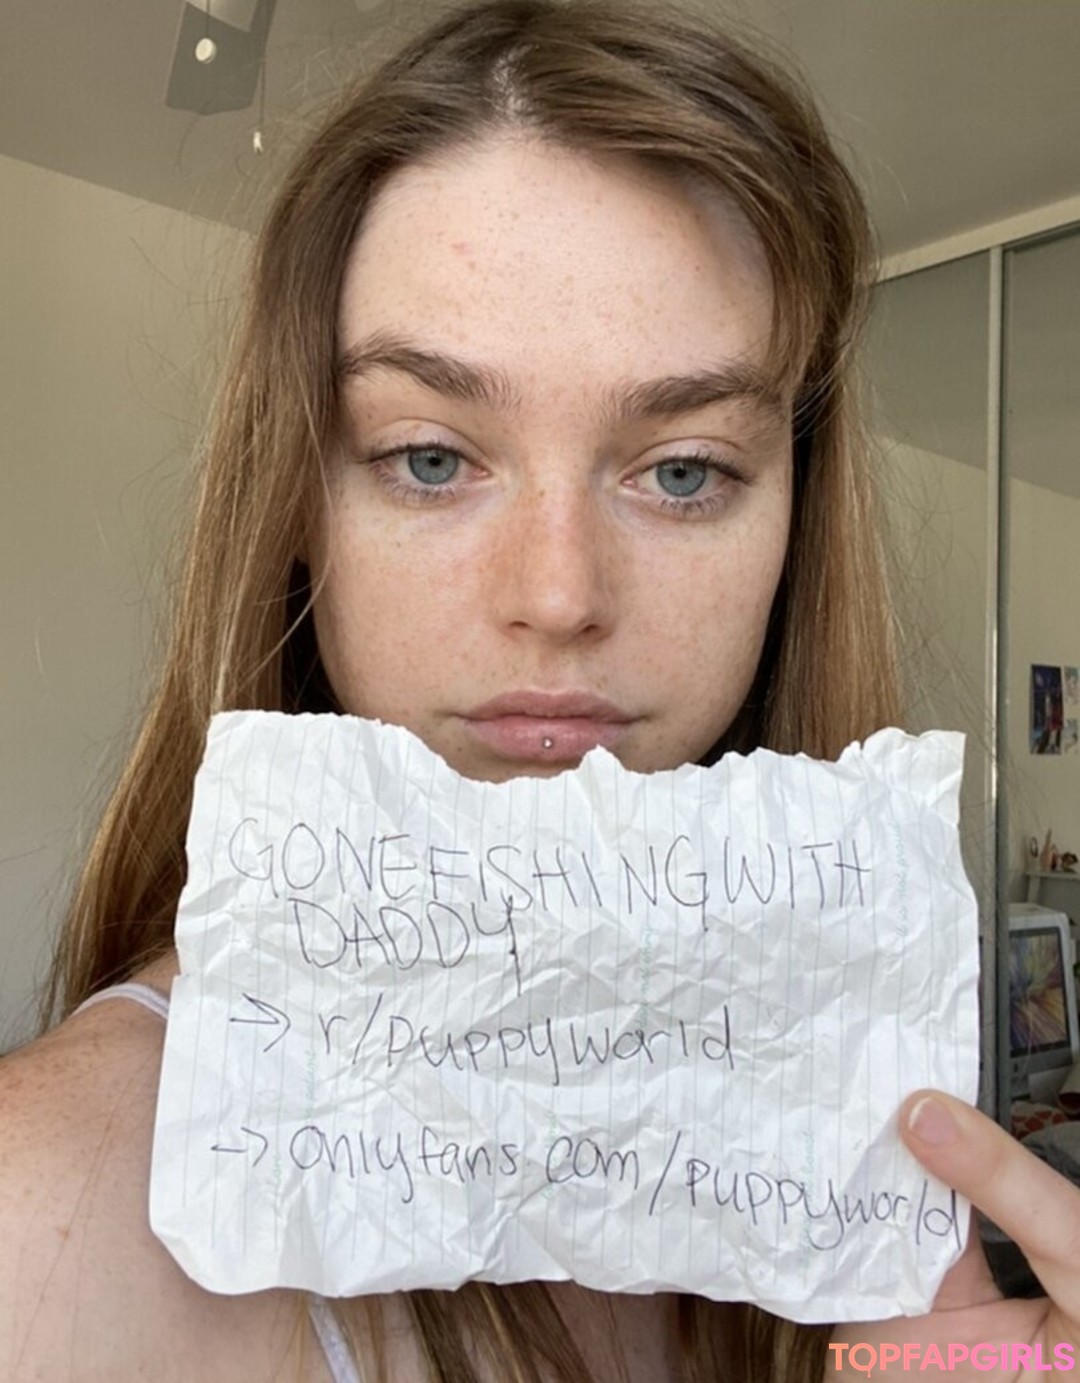 GONEFISHINGWITH
DADDY
-> r/puppyworld
-> onlyfans.com/puppyworld
TOPFAPGIRLS